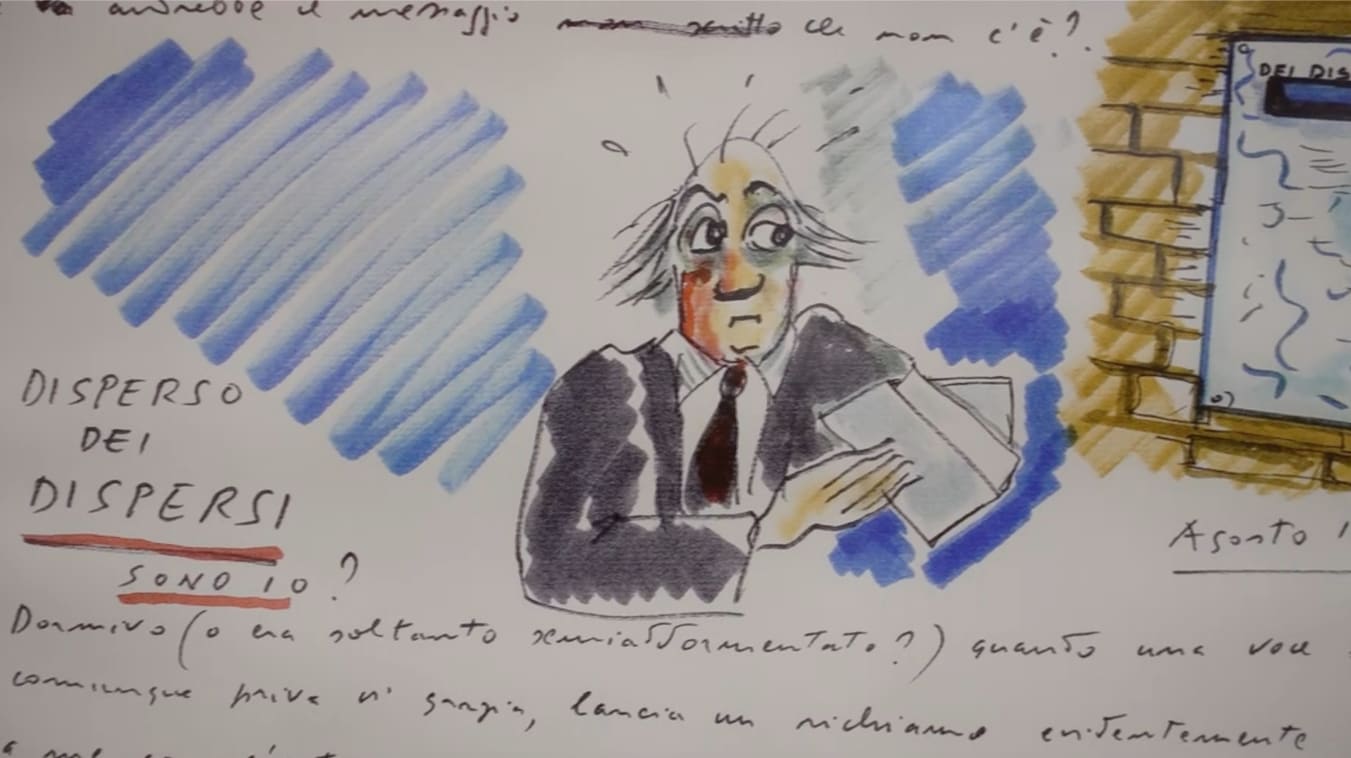 andrebbe il messaggio che non c'è?
DEI DIS
DISPERSO
DEI
DISPERSI
SONO IO?
Agosto 1
Dormivo (o ero soltanto semiaddormentato?) quando una voce
comunque priva di grazia, lancia un richiamo evidentemente